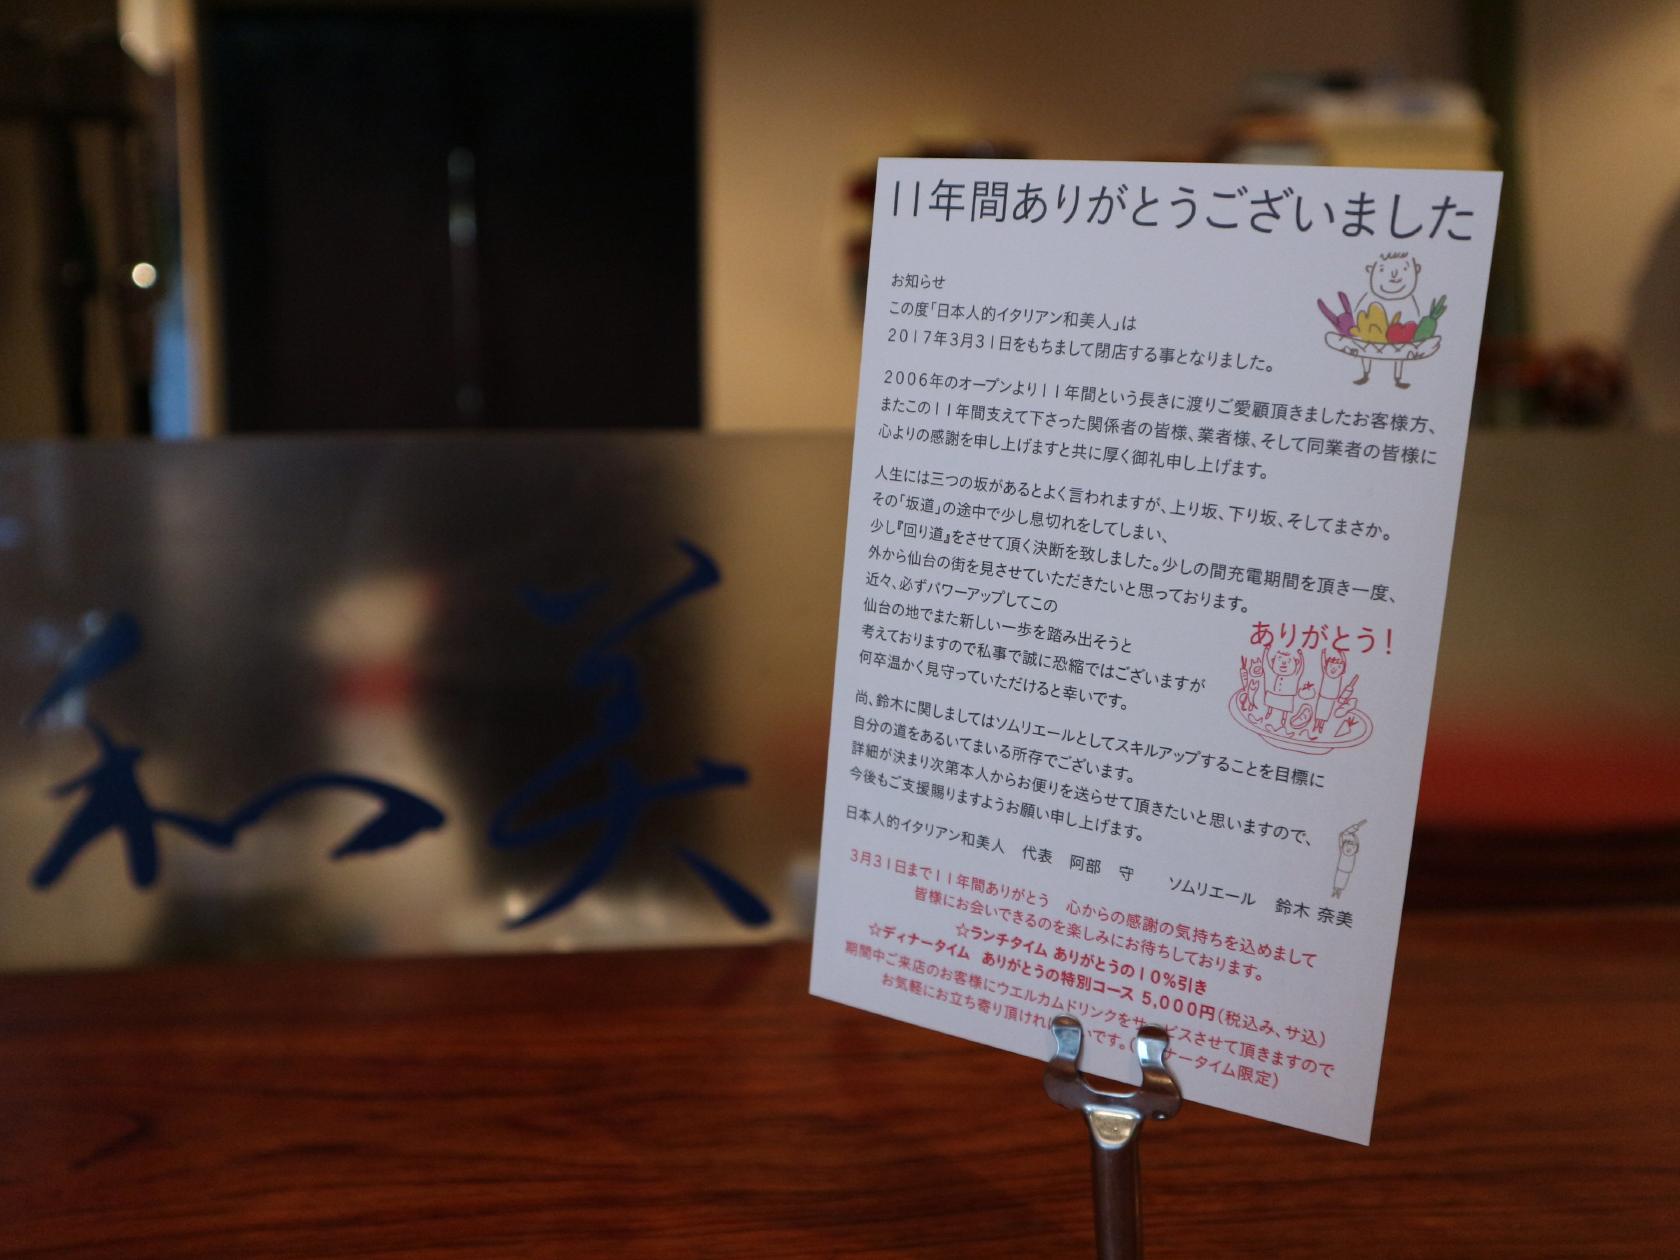 和美
11年間ありがとうございました
お知らせ
この度「日本人的イタリアン和美人」は
2017年3月31日をもちまして閉店する事となりました。
2006年のオープンより11年間という長きに渡りご愛顧頂きましたお客様方、
またこの11年間支えて下さった関係者の皆様、業者様、そして同業者の皆様に
心よりの感謝を申し上げますと共に厚く御礼申し上げます。
人生には三つの坂があるとよく言われますが、上り坂、下り坂、そしてまさか。
その「坂道」の途中で少し息切れをしてしまい、
少し『回り道』をさせて頂く決断を致しました。少しの間充電期間を頂き一度、
外から仙台の街を見させていただきたいと思っております。
近々、必ずパワーアップしてこの
仙台の地でまた新しい一歩を踏み出そうと
考えておりますので私事で誠に恐縮ではございますが
何卒温かく見守っていただけると幸いです。
ありがとう!
尚、鈴木に関しましてはソムリエールとしてスキルアップすることを目標に
自分の道をあるいてまいる所存でございます。
詳細が決まり次第本人からお便りを送らせて頂きたいと思いますので、
今後もご支援賜りますようお願い申し上げます。
日本人的イタリアン和美人 代表 阿部 守 ソムリエール 鈴木 奈美
3月31日まで11年間ありがとう 心からの感謝の気持ちを込めまして
皆様にお会いできるのを楽しみにお待ちしております。
☆ランチタイム ありがとうの10%引き
☆ディナータイム ありがとうの特別コース 5,000円(税込み、サ込)
期間中ご来店のお客様にウエルカムドリンクをサービスさせて頂きますので
お気軽にお立ち寄り頂けれ いです。( ナータイム限定)